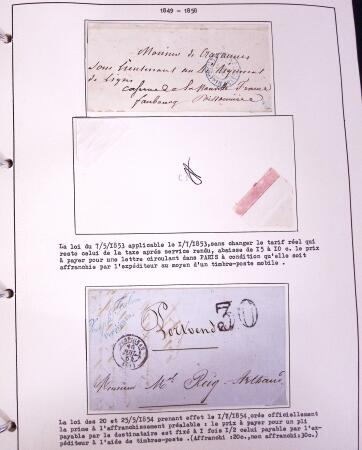 1849 - 1858
Monsieur de Cazannes
Sous Lieutenant au Régiment
de Ligne
caserne de la Nouvelle France
faubourg Poissonnière
La loi du 7/5/1853 applicable le 1/7/1853,sans changer le tarif réel qui
reste celui de la taxe après service rendu, abaisse de 15 à 10 c. le prix
à payer pour une lettre circulant dans PARIS à condition qu'elle soit
affranchie par l'expéditeur au moyen d'un timbre-poste mobile .
30
Portvendres
Monsieur Mel Reig-Arthaud
La loi des 20 et 25/5/1854 prenant effet le 1/7/1854,crée officiellement
la prime à l'affranchissement préalable : le prix à payer pour un pli
payable par le destinataire est fixé à 1 fois 1/2 celui payable par l'ex-
péditeur à l'aide de timbre-poste .(Affranchi :20c.,non affranchi:30c.)